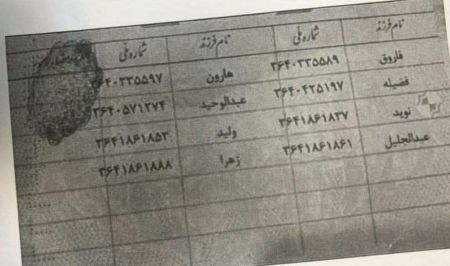 نام فرزند شماره ملی نام فرزند شماره ملی
فاروق ۳۶۴۰۳۳۵۵۸۹ هارون ۳۶۴۰۳۳۵۵۹۷
فضیله ۳۶۴۰۴۲۵۱۹۷ عبدالوحید ۳۶۴۰۵۷۱۲۷۴
نوید ۳۶۴۱۸۶۱۸۳۷ ولید ۳۶۴۱۸۶۱۸۵۳
عبدالجلیل ۳۶۴۱۸۶۱۸۶۱ زهرا ۳۶۴۱۸۶۱۸۸۸